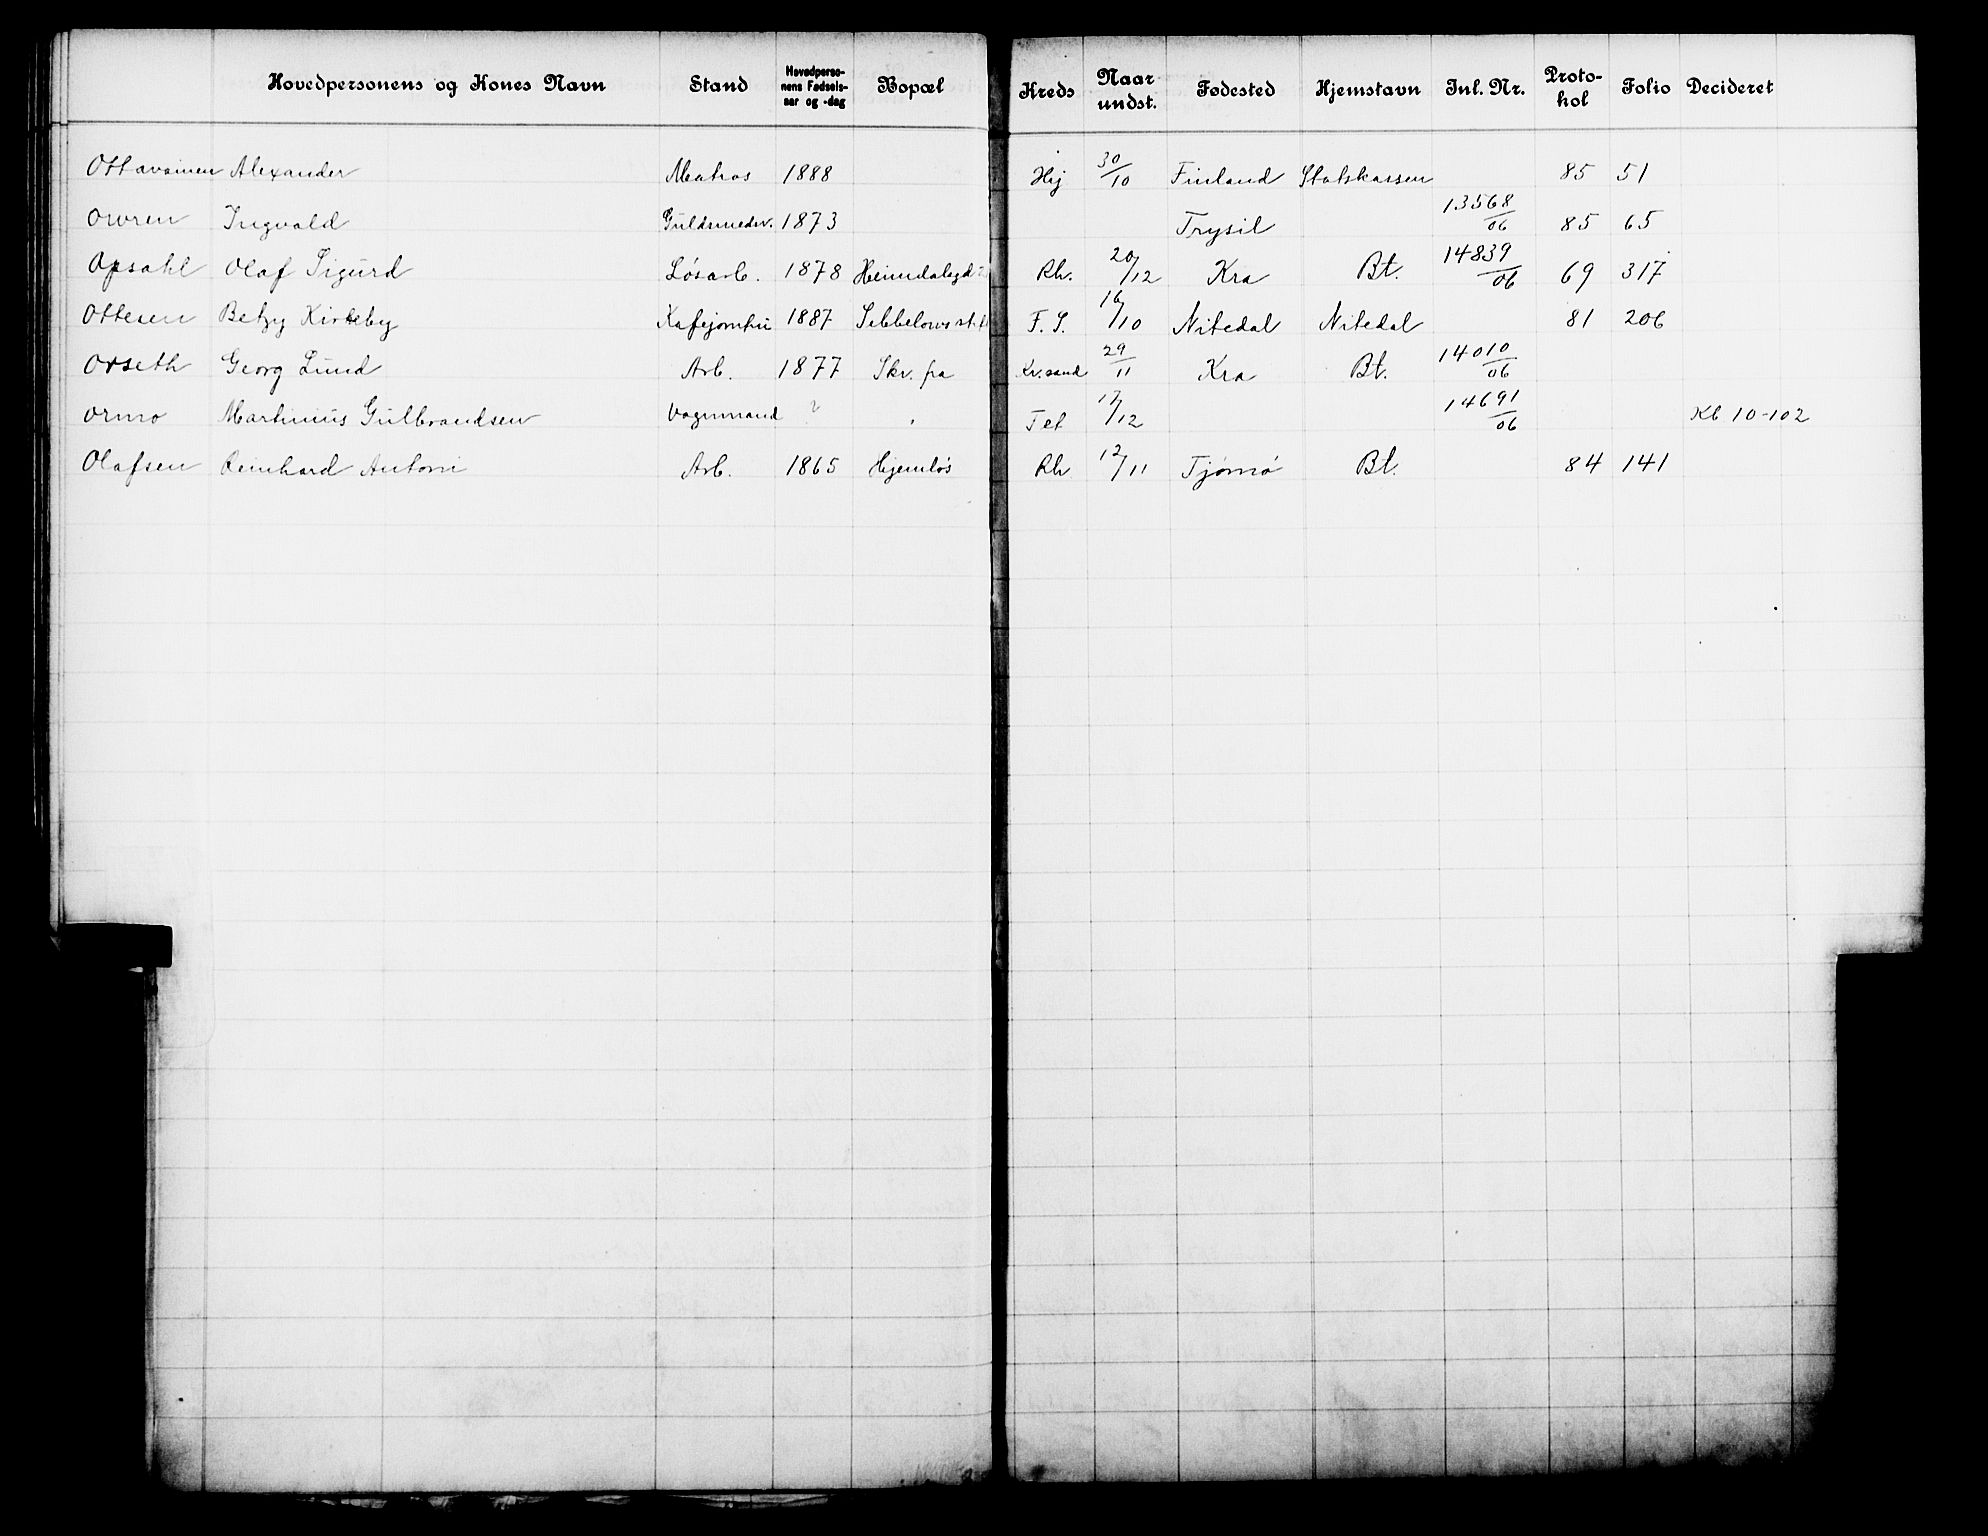 Hovedpersonens og Kones Navn Stand Hovedperso-nens Fødsels-aar og -dag Bopæl Kreds Naar undst. Fødested Hjemstavn Inl. Nr. Proto-kol Folio Decideret
Ottavainen Alexander Matros 1888 Hej 30/10 Finland Statskassen 85 51
Owren Ingvald Guldsmedsv. 1873 Trysil 13568/06 85 65
Opsahl Olaf Sigurd Løsarb. 1878 Heimdalsgd 2 Rh. 20/12 Kra Bt. 14839/06 69 317
Ottesen Betzy Kirkeby Kafejomfru 1887 F. S. 16/10 Nitedal Nitedal 81 206
Orseth Georg Lund Arb. 1877 Skr. fra Kr.sand 29/11 Kra Bt. 14010/06
Ormo Martinius Gulbrandsen Vognmand ? Tet 17/12 14691/06 Kb 10-102
Olafsen Reinhard Antoni Arb. 1865 Hjemløs Rh 12/11 Tjømø Bt. 84 141